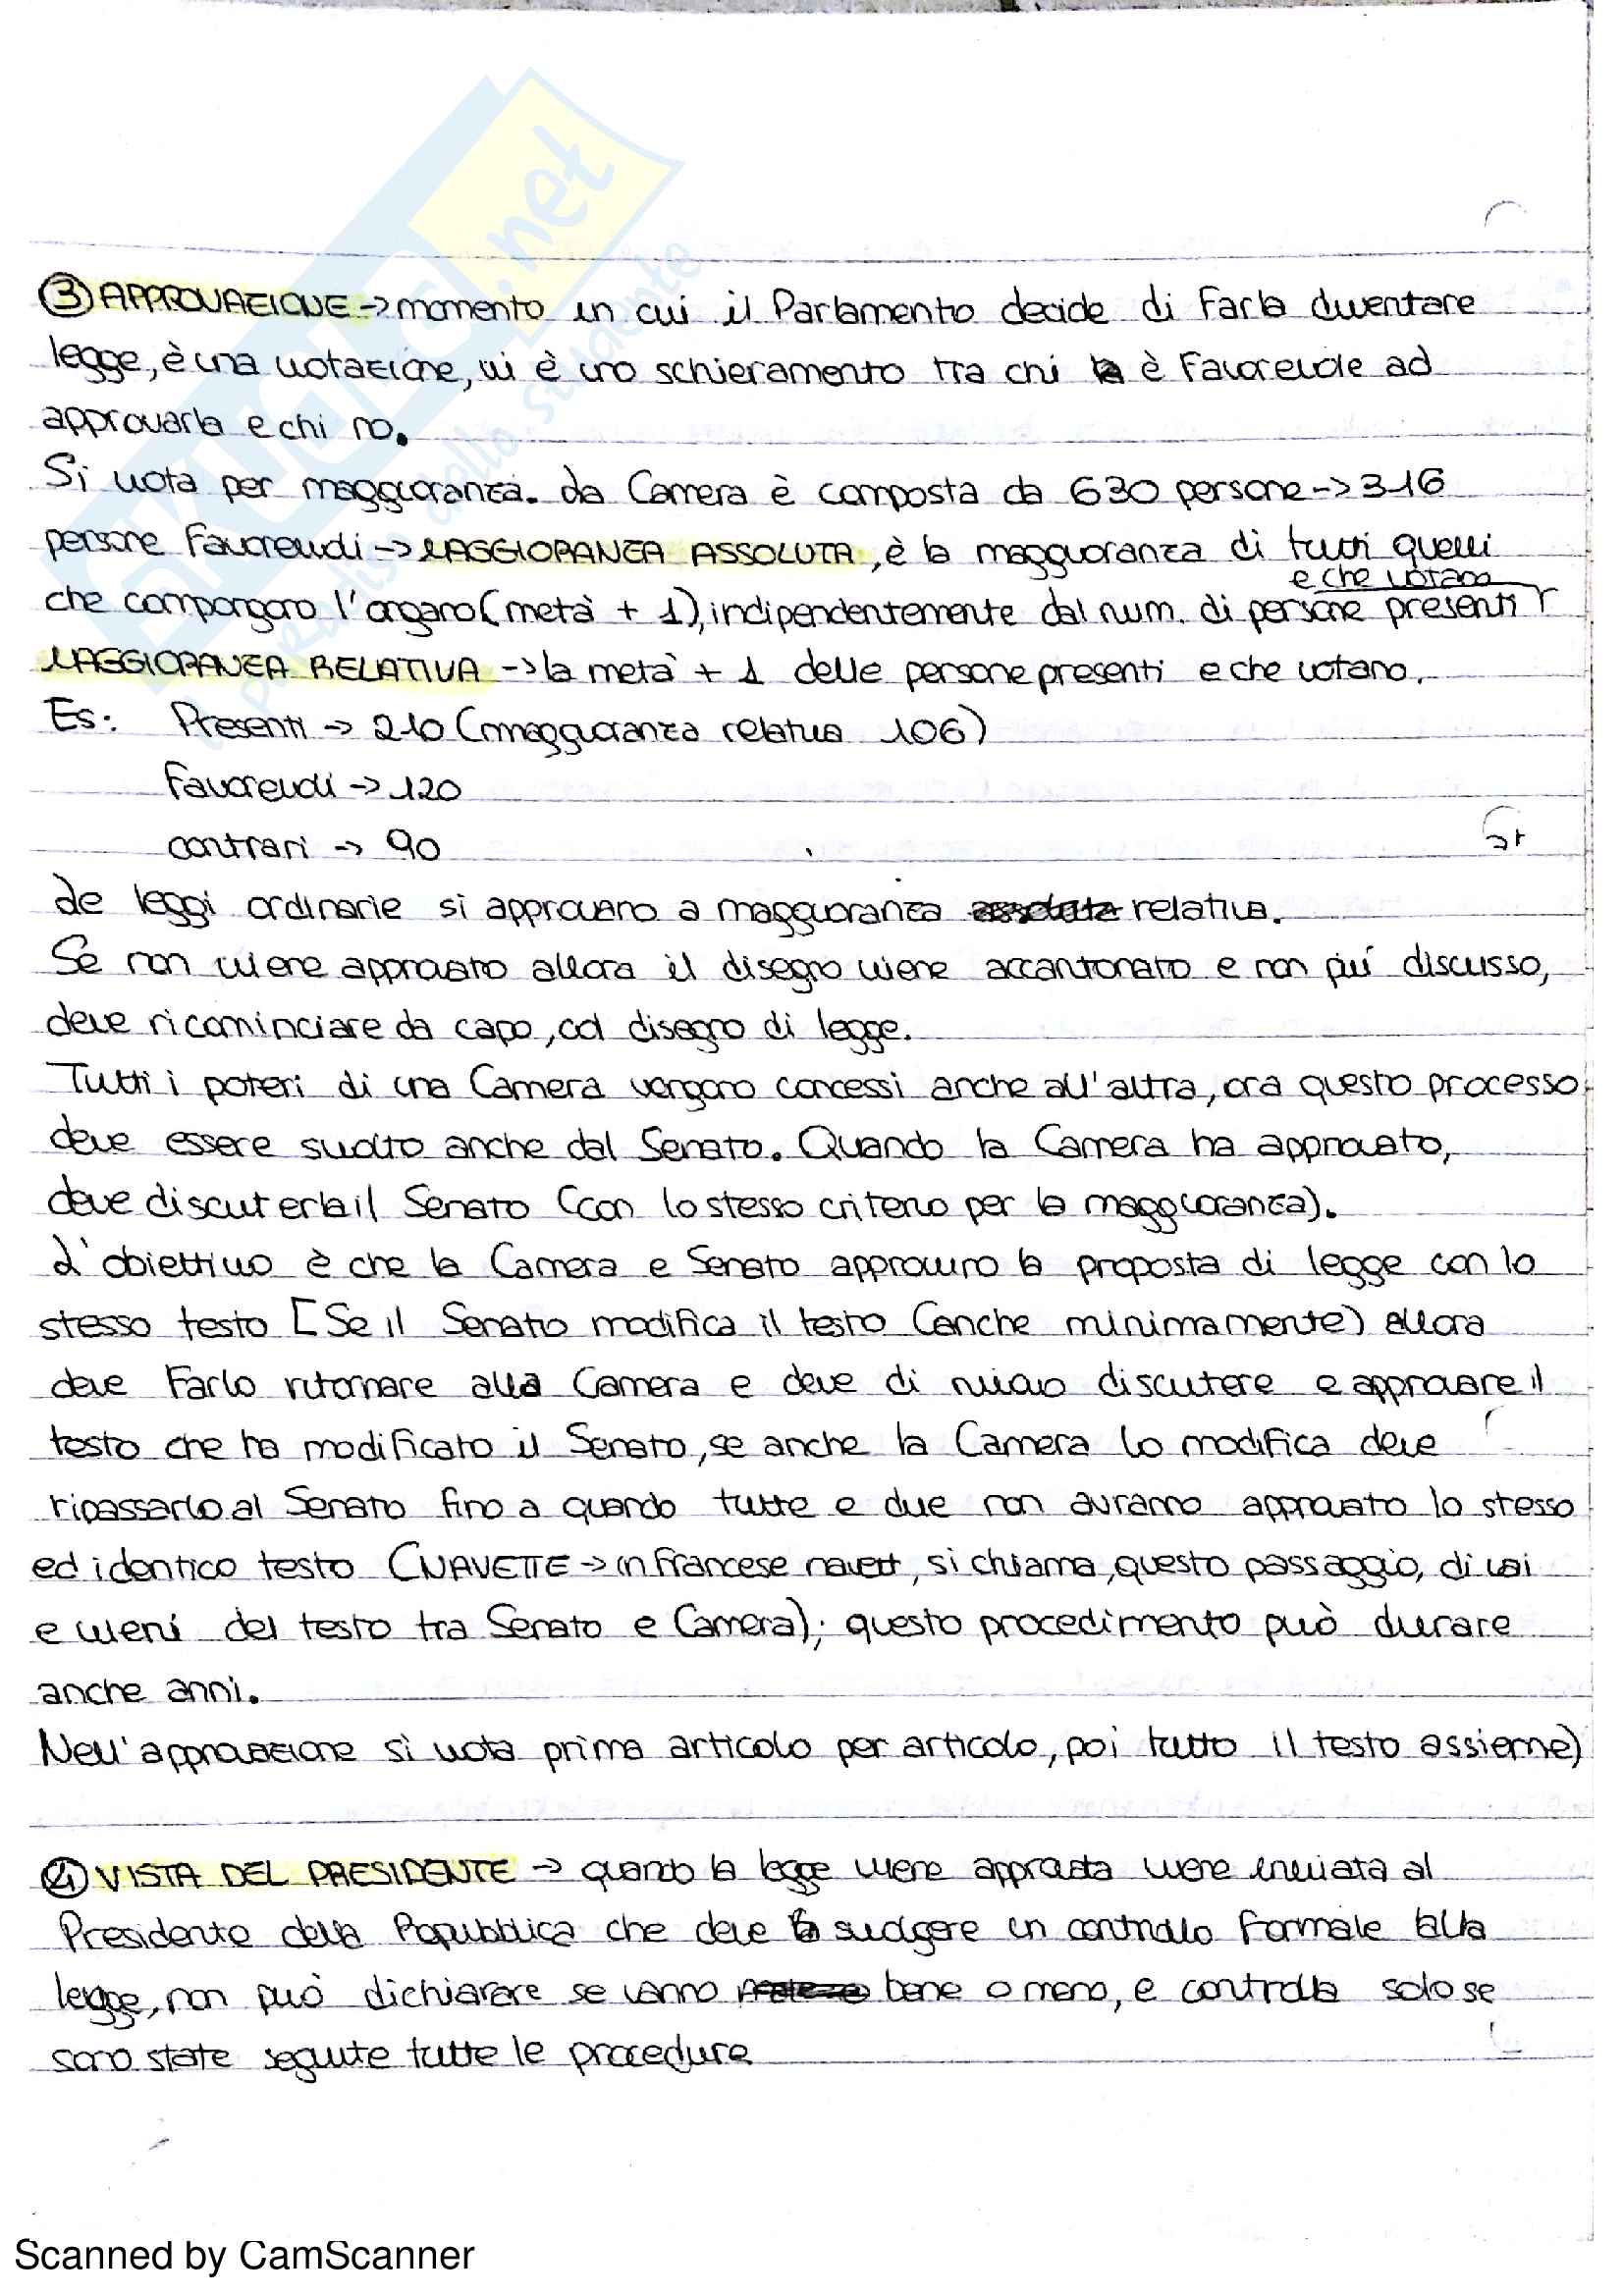 SKUOLA.net
il paradiso dello studente
③ APPROVAZIONE -> momento in cui il Parlamento decide di farla diventare
legge, è una votazione, vi è uno schieramento tra chi è favorevole ad
approvarla e chi no.
Si vota per maggioranza. La Camera è composta da 630 persone -> 316
persone favorevoli -> MAGGIORANZA ASSOLUTA, è la maggioranza di tutti quelli
e che votano
che compongono l'organo (metà + 1), indipendentemente dal num. di persone presenti
MAGGIORANZA RELATIVA -> la metà + 1 delle persone presenti e che votano.
Es: Presenti -> 210 (maggioranza relativa 106)
favorevoli -> 120
contrari -> 90
Le leggi ordinarie si approvano a maggioranza assoluta relativa.
Se non viene approvato allora il disegno viene accantonato e non più discusso,
deve ricominciare da capo, col disegno di legge.
Tutti i poteri di una Camera vengono concessi anche all'altra, ora questo processo
deve essere svolto anche dal Senato. Quando la Camera ha approvato,
deve discuterla il Senato (con lo stesso criterio per la maggioranza).
L'obiettivo è che la Camera e Senato approvino la proposta di legge con lo
stesso testo [Se il Senato modifica il testo (anche minimamente) allora
deve farlo ritornare alla Camera e deve di nuovo discutere e approvare il
testo che ha modificato il Senato, se anche la Camera lo modifica deve
ripassarlo al Senato fino a quando tutte e due non avranno approvato lo stesso
ed identico testo (NAVETTE -> in francese navett, si chiama, questo passaggio, di vai
e vieni del testo tra Senato e Camera); questo procedimento può durare
anche anni.
Nell'approvazione si vota prima articolo per articolo, poi tutto il testo assieme)
④ VISTA DEL PRESIDENTE -> quando la legge viene approvata viene inviata al
Presidente della Repubblica che deve svolgere un controllo formale alla
legge, non può dichiarare se vanno bene o meno, e controlla solo se
sono state seguite tutte le procedure
Scanned by CamScanner